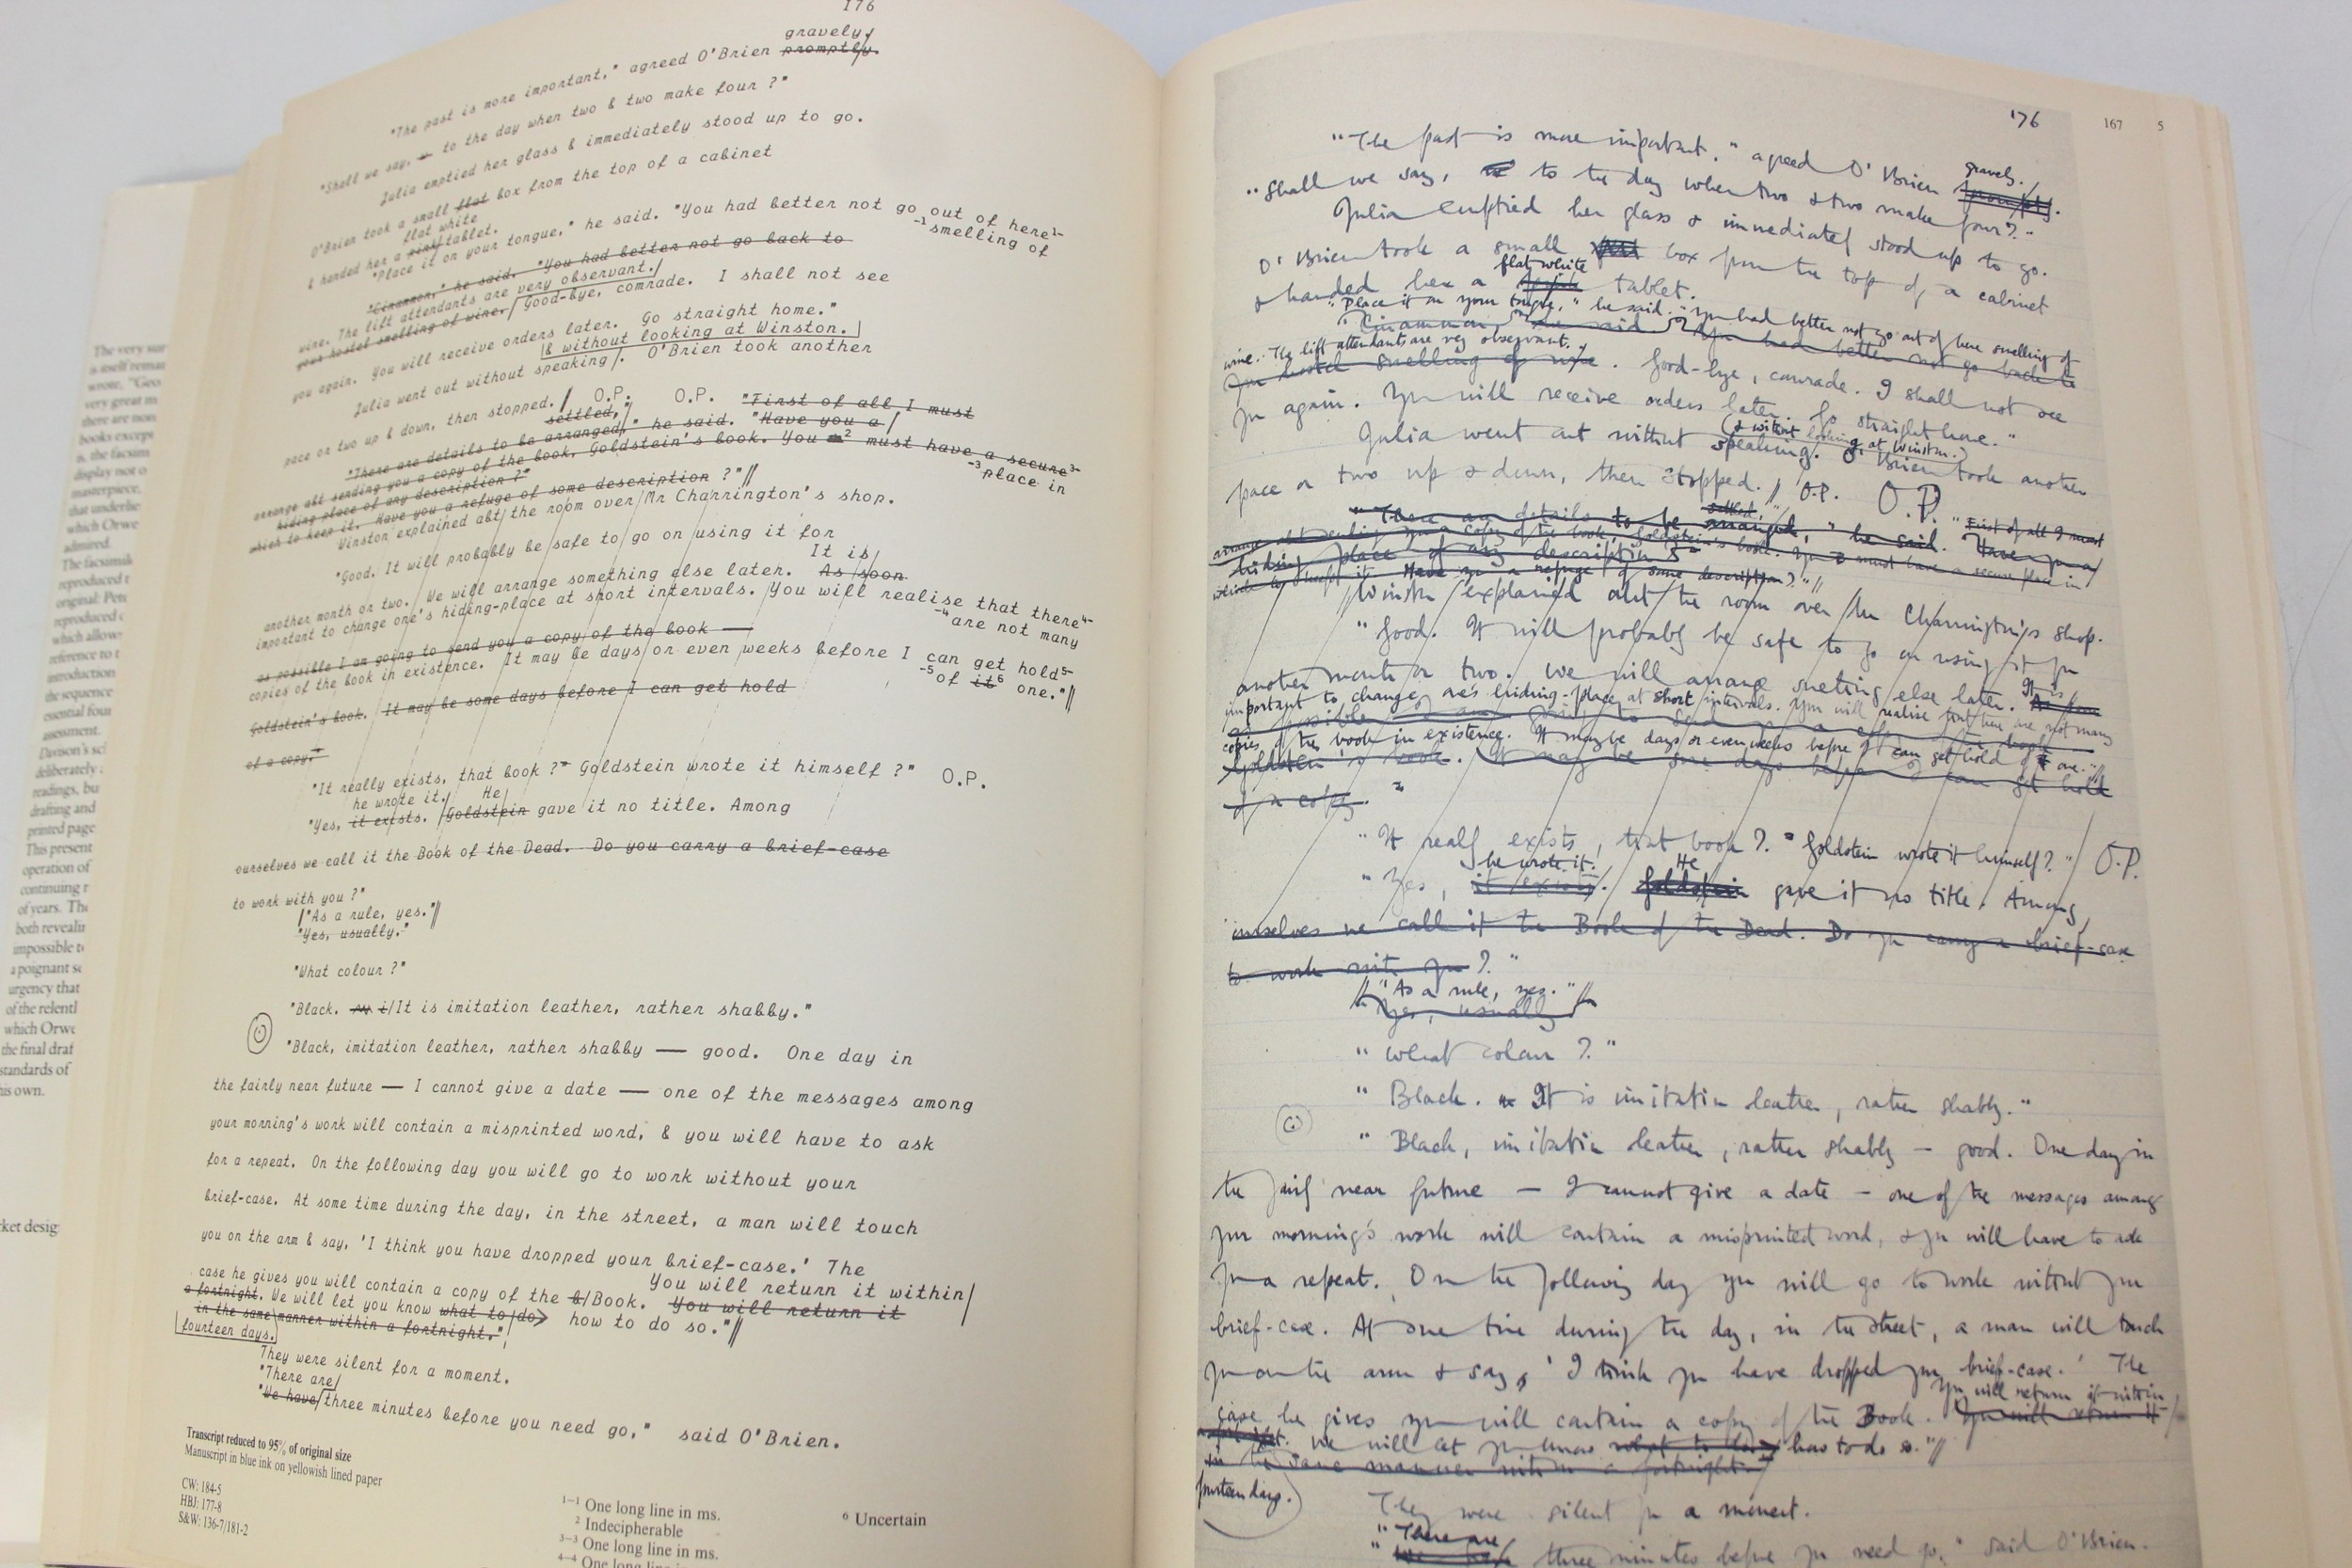 The very sur
is itself remar
wrote, "Geo
very great m
there are non
books except
is, the facsim
display not o
masterpiece,
that underlie
which Orwe
admired.
The facsimile
reproduced t
original: Pete
reproduced c
which allows
reference to t
introduction
the sequence
essential four
assessment.
Davison's scl
deliberately
readings, bu
drafting and
printed page
This present
operation of
continuing r
of years. The
both revealin
impossible to
a poignant se
urgency that
of the relentl
which Orwe
the final draf
standards of
his own.
ket desig
176
gravely.
"The past is more important," agreed O'Brien promptly.
"Shall we say, to the day when two & two make four ?"
Julia emptied her glass & immediately stood up to go.
O'Brien took a small flat box from the top of a cabinet
flat white
& handed her a pink tablet.
"Place it on your tongue," he said. "You had better not go out of here¹⁻
⁻¹smelling of
"Cinammon," he said. "You had better not go back to
wine. The lift attendants are very observant.
your hostel smelling of wine. Good-bye, comrade. I shall not see
you again. You will receive orders later. Go straight home."
& without looking at Winston.
Julia went out without speaking. O'Brien took another
pace or two up & down, then stopped. O.P. O.P. "First of all I must
settled,"
"There are details to be arranged," he said. "Have you a
arrange abt sending you a copy of the book, Goldstein's book. You ² must have a secure³⁻
⁻³place in
hiding place of any description ?"
which to keep it. Have you a refuge of some description ?"
Winston explained abt the room over Mr Charrington's shop.
"Good. It will probably be safe to go on using it for
It is
another month or two. We will arrange something else later. As soon
important to change one's hiding-place at short intervals. You will realise that there⁴⁻
⁻⁴are not many
as possible I am going to send you a copy of the book —
copies of the book in existence. It may be days or even weeks before I can get hold⁵⁻
⁻⁵of it⁶ one."
Goldstein's book. It may be some days before I can get hold
of a copy."
"It really exists, that book ?" Goldstein wrote it himself ?" O.P.
he wrote it. He
"Yes, it exists. Goldstein gave it no title. Among
ourselves we call it the Book of the Dead. Do you carry a brief-case
to work with you ?"
"As a rule, yes."
"Yes, usually."
"What colour ?"
"Black. It is imitation leather, rather shabby."
"Black, imitation leather, rather shabby — good. One day in
the fairly near future — I cannot give a date — one of the messages among
your morning's work will contain a misprinted word, & you will have to ask
for a repeat. On the following day you will go to work without your
brief-case. At some time during the day, in the street, a man will touch
you on the arm & say, 'I think you have dropped your brief-case.' The
You will return it within
case he gives you will contain a copy of the b/Book. You will return it
a fortnight. We will let you know what to do how to do so."
in the same manner within a fortnight."
fourteen days.
They were silent for a moment.
"There are
"We have three minutes before you need go," said O'Brien.
Transcript reduced to 95% of original size
Manuscript in blue ink on yellowish lined paper
CW: 184-5
HBJ: 177-8
S&W: 136-7/181-2
¹⁻¹ One long line in ms.
² Indecipherable
³⁻³ One long line in ms.
⁴⁻⁴ One long line in
⁶ Uncertain
176
167 5
"The past is more important," agreed O'Brien promptly.
gravely.
"Shall we say, to the day when two & two make four?"
Julia emptied her glass & immediately stood up to go.
O'Brien took a small flat box from the top of a cabinet
flat white
& handed her a pink tablet.
"Place it on your tongue," he said. "You had better not go out of here smelling of
"Cinammon," he said. "You had better not go back to
wine. The lift attendants are very observant.
your hostel smelling of wine. Good-bye, comrade. I shall not see
you again. You will receive orders later. Go straight home."
& without looking at Winston.
Julia went out without speaking. O'Brien took another
pace or two up & down, then stopped. O.P. O.P.
settled," "First of all I must
"There are details to be arranged," he said. "Have you a
arrange abt sending you a copy of the book, Goldstein's book. You must have a secure place in
hiding place of any description ?"
which to keep it. Have you a refuge of some description?"
Winston explained abt the room over Mr Charrington's shop.
"Good. It will probably be safe to go on using it for
another month or two. We will arrange something else later. As soon
It is
important to change one's hiding-place at short intervals. You will realise that there are not many
as possible I am going to send you a copy of the book
copies of the book in existence. It may be days or even weeks before I can get hold of it one."
Goldstein's book. It may be some days before I can get hold
of a copy."
"It really exists, that book ?" Goldstein wrote it himself?" O.P.
he wrote it. He
"Yes, it exists. Goldstein gave it no title. Among
ourselves we call it the Book of the Dead. Do you carry a brief-case
to work with you ?"
"As a rule, yes."
"Yes, usually"
"What colour ?"
"Black. It is imitation leather, rather shabby."
"Black, imitation leather, rather shabby — good. One day in
the fairly near future — I cannot give a date — one of the messages among
your morning's work will contain a misprinted word, & you will have to ask
for a repeat. On the following day you will go to work without your
brief-case. At some time during the day, in the street, a man will touch
you on the arm & say, 'I think you have dropped your brief-case.' The
You will return it within
case he gives you will contain a copy of the Book. You will return it
a fortnight. We will let you know what to do how to do so."
in the same manner within a fortnight."
fourteen days.
They were silent for a moment.
"There are
"We have three minutes before you need go," said O'Brien.